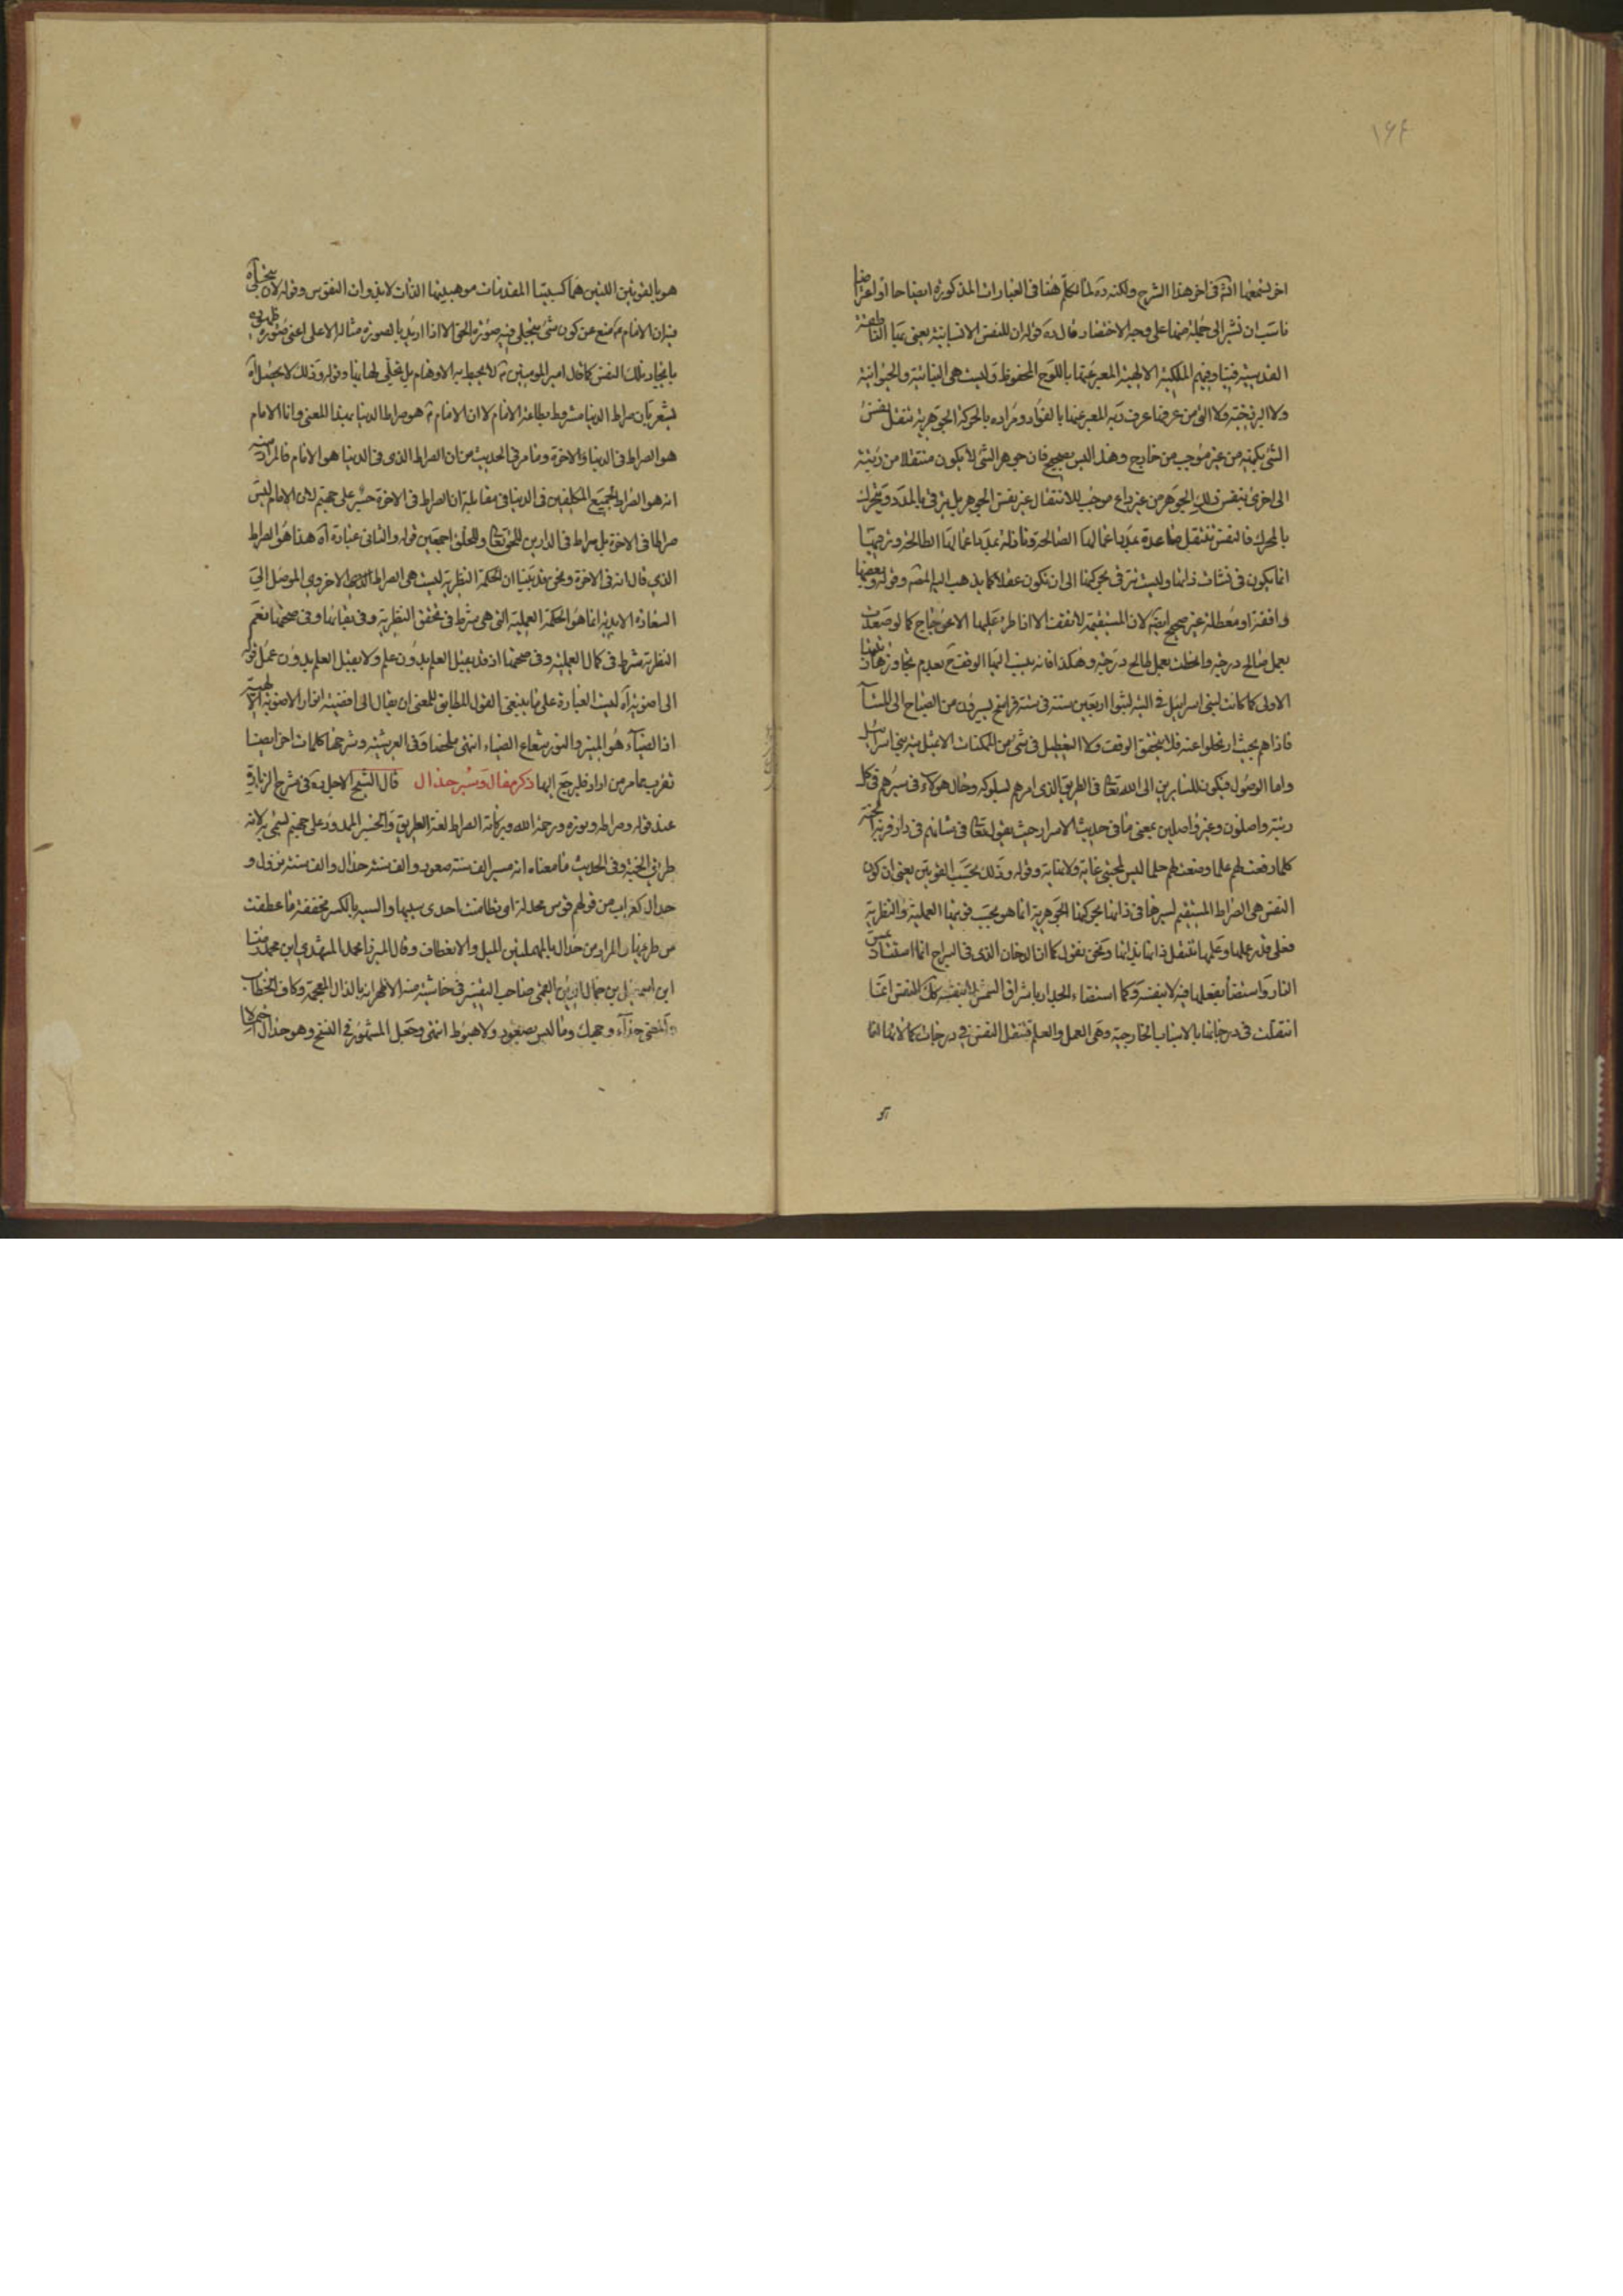 ۱۶۴
اخر لشمعها انش فى اخر هذا الشرح ولكنه ره لما تكلم هنا فى العبارات المذكورة ايضاحا او اعتراضا
ناسب ان نشير الى جملة منها على وجه الاختصار فقال ره قوله ان للنفس الانسانية يعنى بها الناطقة
القدسية الملكية الالهية المعبر عنها باللوح المحفوظ وليست هى النباتية والحيوانية
ولا من عرفها عرف ربه المعبر عنها بالفؤاد ومراده بالحركة الجوهرية تنقل نفس
الشئ بكميته من غير موجب من خارج وهذا ليس بصحيح فان جوهر الشئ لا يكون منتقلا من رتبة
الى اخرى بنفس ذلك الجوهر من غير داع موجب للانتقال غير نفس الجوهر بل يترقى بالمدد ويتحرك
بالمحرك فالنفس تنتقل صاعدة بمدد اعمالها الصالحة ونازلة بمدد اعمالها الطالحة وترقيها
انما يكون فى نشات ذاتها وليست تترقى بحركتها الى ان تكون عقلا كما يذهب اليه المصنف وقوله وبعضها
واقفة او معطلة غير صحيح ايضا لان المستقيمة لا تقف الا اذا طرء عليها الاعوجاج كما لو صعدت
بعمل صالح درجة وانحطت بعمل طالح درجة وهكذا فانه ينسب اليها الوقوف ح بعدم تجاوزها رتبتها
الاولى كما كانت لبنى اسرائيل فى التيه لبثوا اربعين سنة فى ستة فراسخ يسيرون من الصباح الى المساء
فاذا هم بحيث ارتحلوا عنه فلا يتحقق الوقف ولا التعطيل فى شئ من الممكنات الا بمثل تيه بنى اسرائيل
واما الوصول فيكون للسايرين الى الله تعالى فى الطريق الذى امرهم بسلوكه وحال هؤلاء فى سيرهم فى كل
رتبة واصلون وغير واصلين بمعنى ما فى حديث الاسرار حيث يقول تعالى فى شانهم فى دار قربه
كلما رفعت لهم علما وضعت لهم حلما ليس لمحبتى غاية ولا نهاية وقوله وذلك بحسب القوتين يعنى ان كون
النفس هى الصراط المستقيم لسيرها فى ذاتها بحركتها الجوهرية انما هو بحسب قوتيها العملية والنظرية
فعلى قدر علمها وعملها تنتقل ذاتها بذاتها ونحن نقول كما ان الدخان الذى فى السراج انما استنار بمس
النار واستضاء بفعلها فيه لا بنفسه وكما استضاء الجدار باشراق الشمس لا بنفسه كك النفس انما
انتقلت فى درجاتها بالاسباب الخارجية وهى العمل والعلم فتنتقل النفس فى درجات كمالاتها
هو بالقوتين اللتين هما كسبيتا المقدمات موهبيتها الذات لا بذوات النفوس وقوله لان يتجلى
فيه ان الامام ع منع عن كون شئ يتجلى فيه صورة الحق الا اذا اريد بالصورة مثاله الاعلى اعنى صورة ظهوره
بايجاد تلك النفس كما قال امير المومنين ع لا تحيط به الاوهام بل تجلى لها بها وقوله وذلك لا يحصل اه
يشعر بان صراط الدنيا مشروط بطاعة الامام لا ان الامام ع هو صراط الدنيا بهذا المعنى وانا الامام
هو الصراط فى الدنيا والاخرة وما مر فى الحديث من ان الصراط الذى فى الدنيا هو الامام فالمراد منه
انه هو الصراط لجميع المكلفين فى الدنيا فى مقابلة ان الصراط فى الاخرة جسر على جهنم لان الامام ليس
صراطا فى الاخرة بل صراط فى الدارين للحق تعالى وللخلق اجمعين قوله والثانى عبادة اه هذا هو الصراط
الذى قال انه فى الاخرة ونحن قد بينا ان الحكمة النظرية ليست هى الصراط الاخروى الموصل الى
السعادة الابدية انما هو الحكمة العملية التى هى شرط فى تحقق النظرية وفى بقائها وفى صحتها نعم
النظرية شرط فى كمال العملية وفى صحتها اذ قد يقبل العمل بدون علم ولا يقبل العلم بدون عمل قوله
الى اضوئية اه ليست العبارة على ما ينبغى القول المطابق للمعنى ان يقال الى افضية انوار الاضوئية الالهية
اذ الضياء هو المنير والنور شعاع الضياء انتهى ملخصا وفى العرشية وشرحها كلمات اخر ايضا
تقرب مما مر من اراد فليرجع اليها ذكر مقال وسير حذال قال الشيخ الاجل ره فى شرح الزيارة
عند قوله وصراطه ونوره ورحمة الله وبركاته الصراط لغة الطريق والجسر الممدود على جهنم يسمى به لانه
طريق الجنة وفى الحديث ما معناه انه مسير الف سنة صعود والف سنة حذال والف سنة نزول و
حدال كغراب من قولهم قوس محدلة اى تطامنت احدى سيتيها والسية بالكسر مخففة ما عطفت
من طرفيها والمراد من حدال بالمهملتين الميل والانعطاف وقال الميرزا محمد المشهدى ابن محمد رضا
ابن اسمعيل بن جمال الدين القمى صاحب التفسير فى حاشية منه الاظهر انه بالذال المعجمة وكاف الخطاب
والمعنى حذاء وجهك وما ليس بصعود ولا هبوط انتهى وجعل المشهور فى النسخ وهو حذال اخره لاما